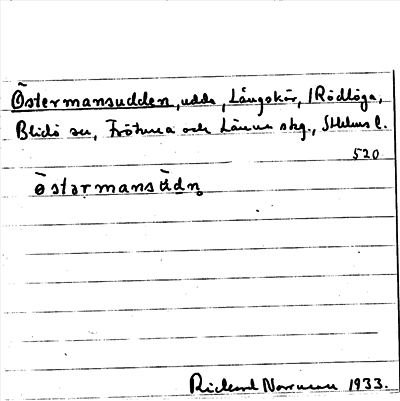 Östermansudden, udde, Långskär, /Rödlöga,
Blidö sn, Frötuna och Länna skg., Sthlms l.
520
ö̀stərmansùdn̥
Rickard Norrman 1933.